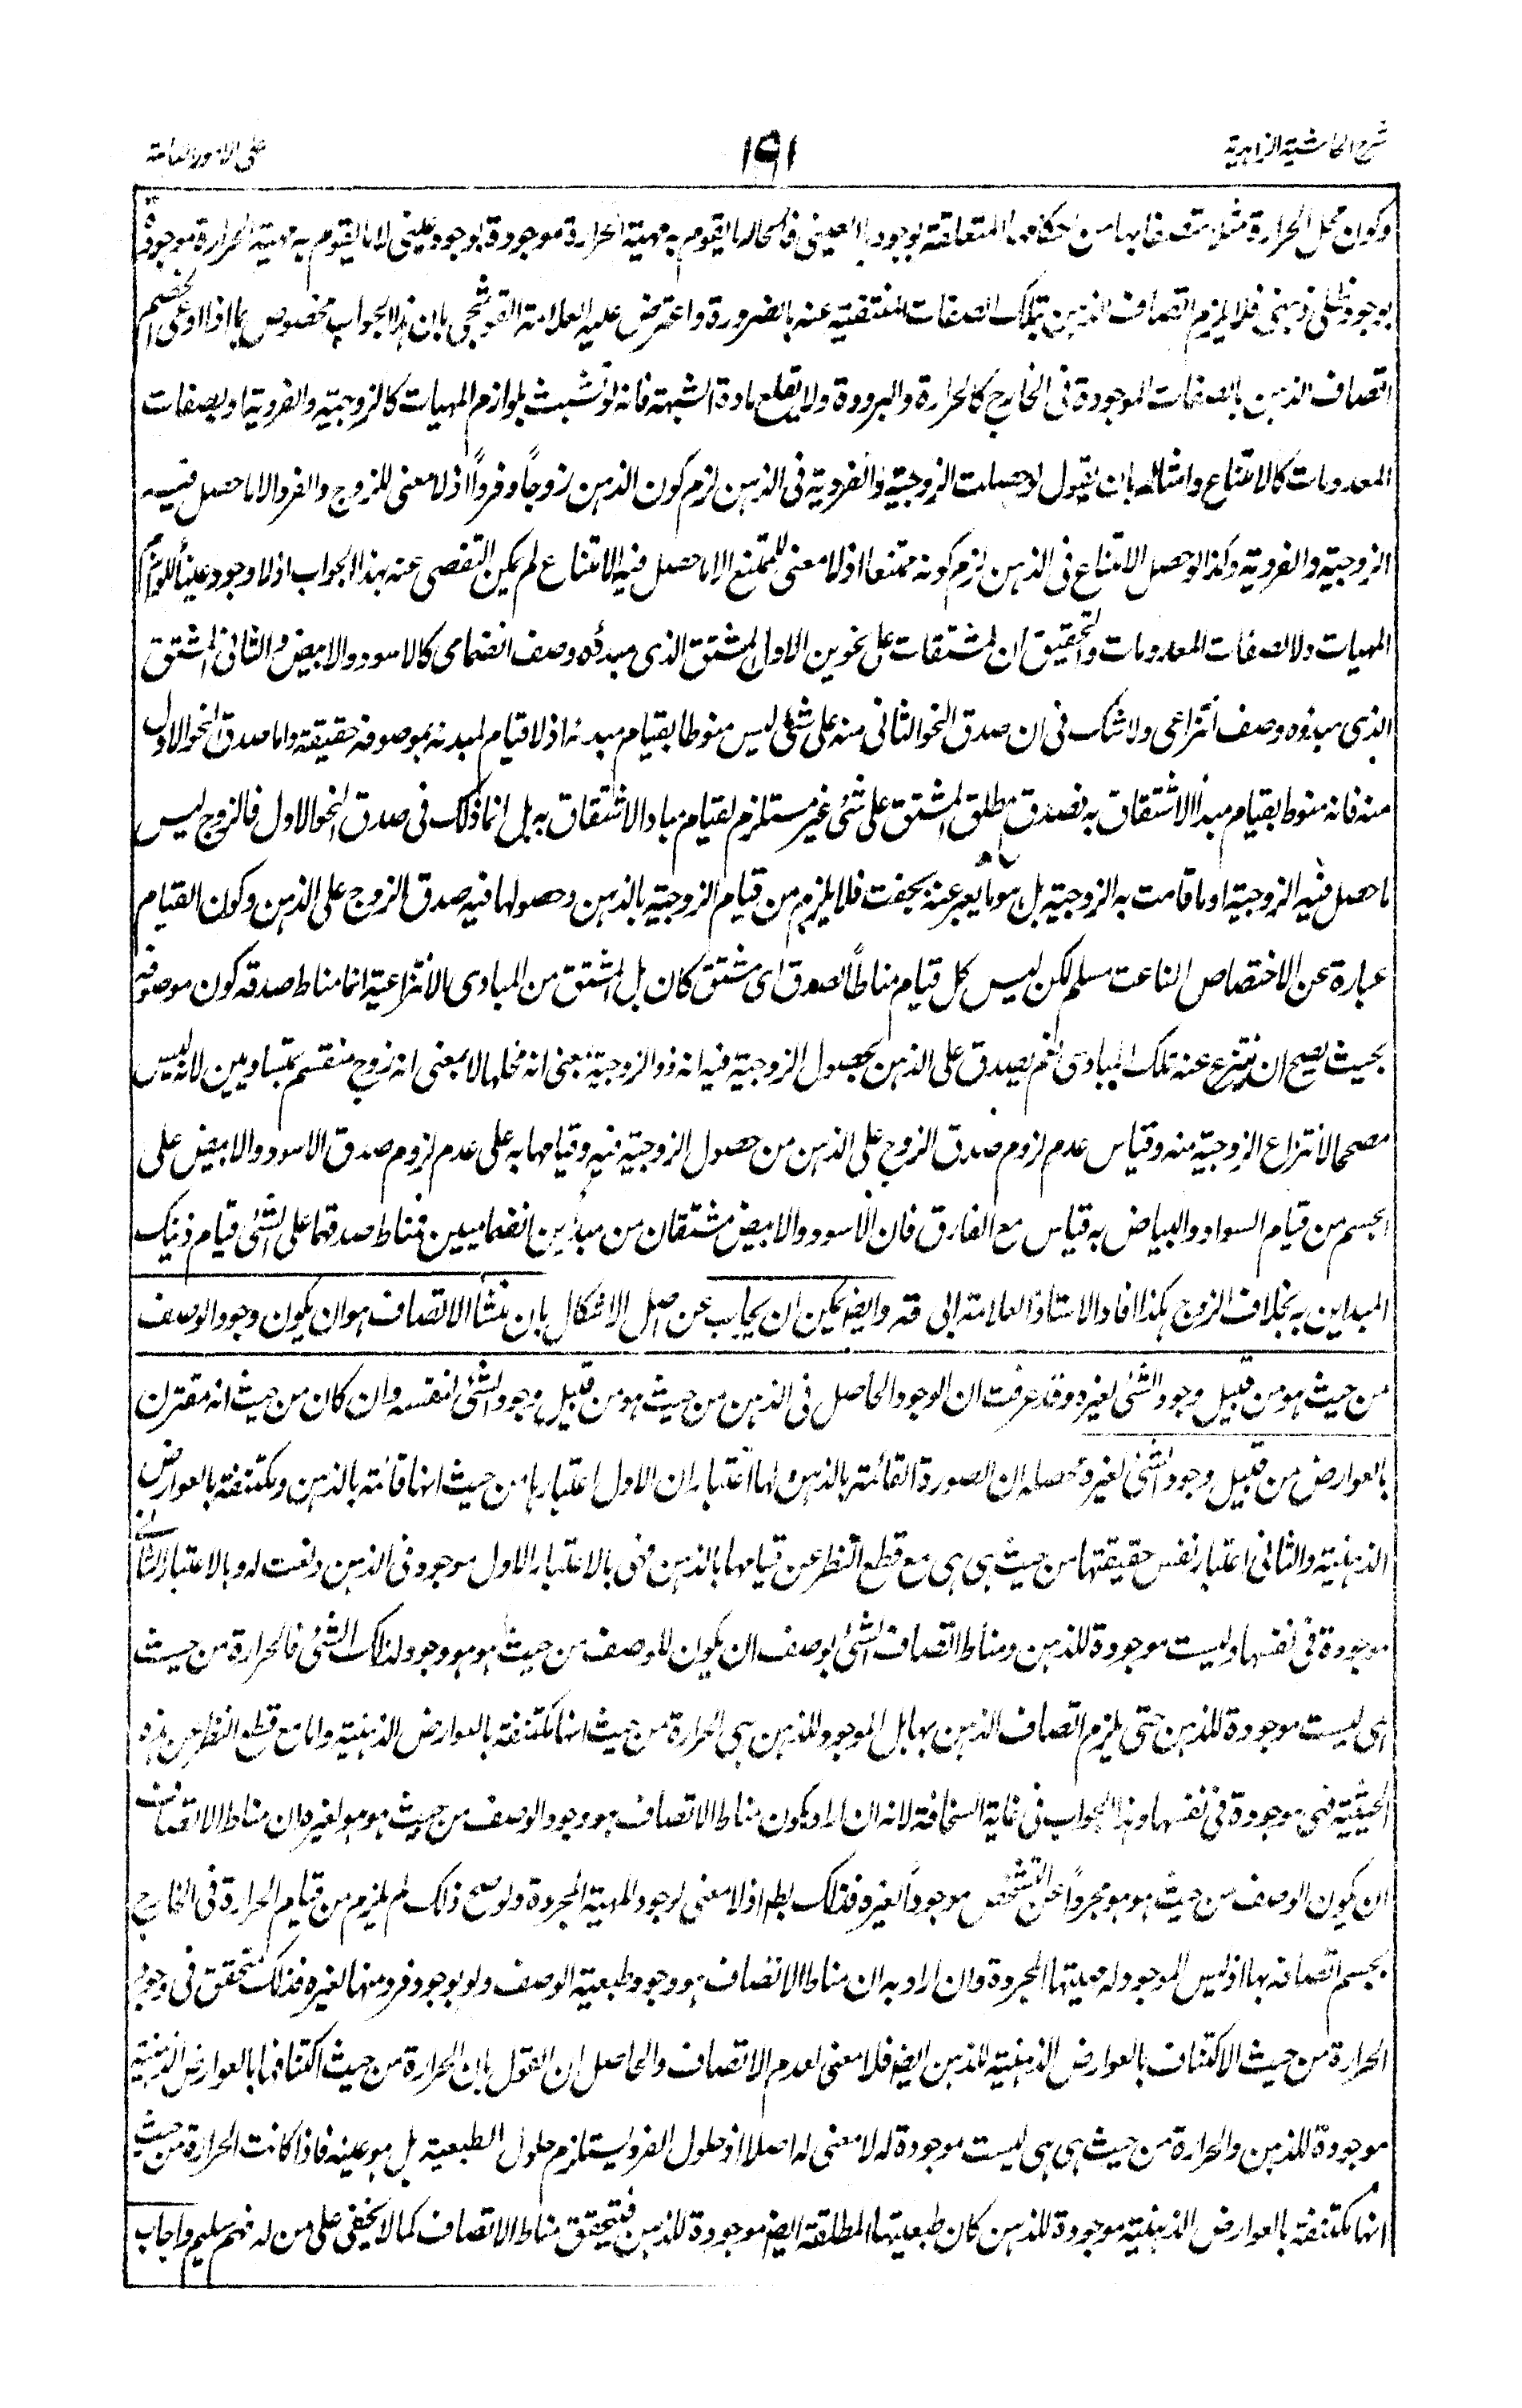 شرح الحاشية الزاهدية
١٩١
على الامور العامة
وكون محل الحرارة مثلا متصفا بها من احكامها المتعلقة بوجودها العينى فالحار ما يقوم به مهية الحرارة موجودة بوجود عينى لا ما يقوم به مهية الحرارة موجودة
بوجود ظلى ذهنى فلا يلزم اتصاف الذهن بتلك الصفات المنتفية عنه بالضرورة واعترض عليه العلامة القوشجى بان هذا الجواب مخصوص بما اذا ادعى الخصم
اتصاف الذهن بالصفات الموجودة فى الخارج كالحرارة والبرودة ولا يقلع مادة الشبهة فانه لو تشبث بلوازم المهيات كالزوجية والفردية او بصفات
المعدومات كالامتناع وامثاله بان يقول لو حصلت الزوجية والفردية فى الذهن لزم كون الذهن زوجاً وفرداً اذ لا معنى للزوج والفرد الا ما حصل فيه
الزوجية والفردية وكذا لو حصل الامتناع فى الذهن لزم كونه ممتنعا اذ لا معنى للممتنع الا ما حصل فيه الامتناع لم يمكن التفصى عنه بهذا الجواب اذ لا وجود عينياً للوازم
المهيات ولا لصفات المعدومات والتحقيق ان المشتقات على نحوين الاول المشتق الذى مبدؤه وصف انضمامى كالاسود والابيض والثانى المشتق
الذى مبدؤه وصف انتزاعى ولا شك فى ان صدق النحو الثانى منه على شئ ليس منوطا بقيام مبدئه اذ لا قيام لمبدئه بموصوفه حقيقة واما صدق النحو الاول
منه فانه منوط بقيام مبدأ الاشتقاق به فصدق مطلق المشتق على شئ غير مستلزم لقيام مبدا الاشتقاق به بل انما ذلك فى صدق النحو الاول فالزوج ليس
ما حصل فيه الزوجية او ما قامت به الزوجية بل هو ما يعبر عنه بجفت فلا يلزم من قيام الزوجية بالذهن وحصولها فيه صدق الزوج على الذهن وكون القيام
عبارة عن الاختصاص الناعت مسلم لكن ليس كل قيام مناطاً لصدق اى مشتق كان بل المشتق من المبادى الانتزاعية انما مناط صدقه كون موصوفه
بحيث يصح ان ينتزع عنه تلك المبادى نعم يصدق على الذهن بحصول الزوجية فيه انه ذو الزوجية بمعنى انه محلها لا بمعنى انه زوج منقسم بمتساويين لانه ليس
مصححا لانتزاع الزوجية منه وقياس عدم لزوم صدق الزوج على الذهن من حصول الزوجية فيه وقيامها به على عدم لزوم صدق الاسود والابيض على
الجسم من قيام السواد والبياض به قياس مع الفارق فان الاسود والابيض مشتقان من مبدأين انضماميين فمناط صدقهما على الشئ قيام ذينك
المبداين به بخلاف الزوج هكذا افاد الاستاذ العلامة ابى قده وايضا يمكن ان يجاب عن اصل الاشكال بان منشأ الاتصاف هو ان يكون وجود الوصف
من حيث هو من قبيل وجود الشئ لغيره وقد عرفت ان الوجود الحاصل فى الذهن من حيث هو من قبيل وجود الشئ لنفسه وان كان من حيث انه مقترن
بالعوارض من قبيل وجود الشئ لغيره محصله ان الصورة القائمة بالذهن لها اعتباران الاول اعتبارها من حيث انها قائمة بالذهن ومكتنفة بالعوارض
الذهنية والثانى اعتبار نفس حقيقتها من حيث هى هى مع قطع النظر عن قيامها بالذهن فهى بالاعتبار الاول موجود فى الذهن ونعت له وبالاعتبار الثانى
موجودة فى نفسها وليست موجودة للذهن ومناط اتصاف الشئ بوصف ان يكون للوصف من حيث هو هو وجود لذلك الشئ فالحرارة من حيث
هى ليست موجودة للذهن حتى يلزم اتصاف الذهن بها بل الموجود للذهن هى الحرارة من حيث انها مكتنفة بالعوارض الذهنية واما مع قطع النظر عن هذه
الحيثية فهى موجودة فى نفسها وهذا الجواب فى غاية السخافة لانه ان اراد بكون مناط الاتصاف هو وجود الوصف من حيث هو هو لغيره ان مناط الاتصاف
ان يكون الوصف من حيث هو هو مجرداً عن التشخص موجوداً لغيره فذلك بط اذ لا معنى لوجود المهية المجردة ولو صح ذلك لم يلزم من قيام الحرارة فى الخارج
بجسم اتصافه بها اذ ليس الموجود له مهيتها المجردة وان اراد به ان مناط الاتصاف هو وجود طبعية الوصف ولو بوجود فرد منها لغيره فذلك متحقق فى وجود
الحرارة من حيث الاكتناف بالعوارض الذهنية للذهن ايضا فلا معنى لعدم الاتصاف والحاصل ان القول بان الحرارة من حيث اكتنافها بالعوارض الذهنية
موجودة للذهن والحرارة من حيث هى هى ليست موجودة له لا معنى له اصلا اذ حلول الفرد يستلزم حلول الطبعية بل هو عينه فاذا كانت الحرارة من حيث
انها مكتنفة بالعوارض الذهنية موجودة للذهن كان طبعيتها المطلقة ايضا موجودة للذهن فيتحقق مناط الاتصاف كما لا يخفى على من له فهم سليم واجاب